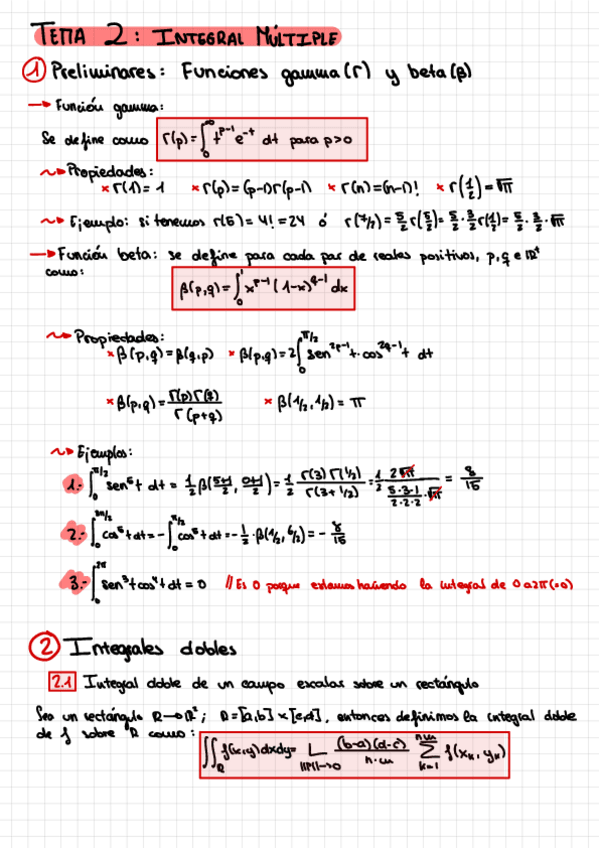 TEMA 2: INTEGRAL MÚLTIPLE
① Preliminares: Funciones gamma(Γ) y beta(β)
→ Función gamma:
Se define como Γ(p)=∫₀^∞ t^(p-1) e^(-t) dt para p>0
Propiedades:
×Γ(1)=1 ×Γ(p)=(p-1)Γ(p-1) ×Γ(n)=(n-1)! ×Γ(1/2)=√π
Ejemplo: si tenemos Γ(5)=4!=24 ó Γ(7/2)=5/2 Γ(5/2)=5/2·3/2 Γ(1/2)=5/2·3/2·√π
→ Función beta: se define para cada par de reales positivos, p,q ∈ ℝ⁺
como:
β(p,q)=∫₀^1 x^(p-1) (1-x)^(q-1) dx
Propiedades:
×β(p,q)=β(q,p) ×β(p,q)=2∫₀^(π/2) sen^(2p-1) t · cos^(2q-1) t dt
×β(p,q)=Γ(p)Γ(q)/Γ(p+q) ×β(1/2,1/2)=π
Ejemplos:
1.- ∫₀^(π/2) sen⁵t dt = 1/2 β(5+1/2, 0+1/2) = 1/2 Γ(3)Γ(1/2)/Γ(3+1/2) = 1/2 2√π/(5·3·1/2·2·2·√π) = 8/15
2.- ∫₀^(3π/2) cos⁵t dt = -∫₀^(π/2) cos⁵t dt = -1/2·β(1/2, 6/2) = -8/15
3.- ∫₀^(2π) sen³t cos⁴t dt = 0 //Es 0 porque estamos haciendo la integral de 0 a 2π(=0)
② Integrales dobles
2.1 Integral doble de un campo escalar sobre un rectángulo
Sea un rectángulo R→ℝ²; R=[a,b]×[c,d], entonces definimos la integral doble
de f sobre R como:
∬_R f(x,y)dxdy= L_(||P||→0) (b-a)(d-c)/n·m Σ_(k=1)^(n·m) f(x_k, y_k)